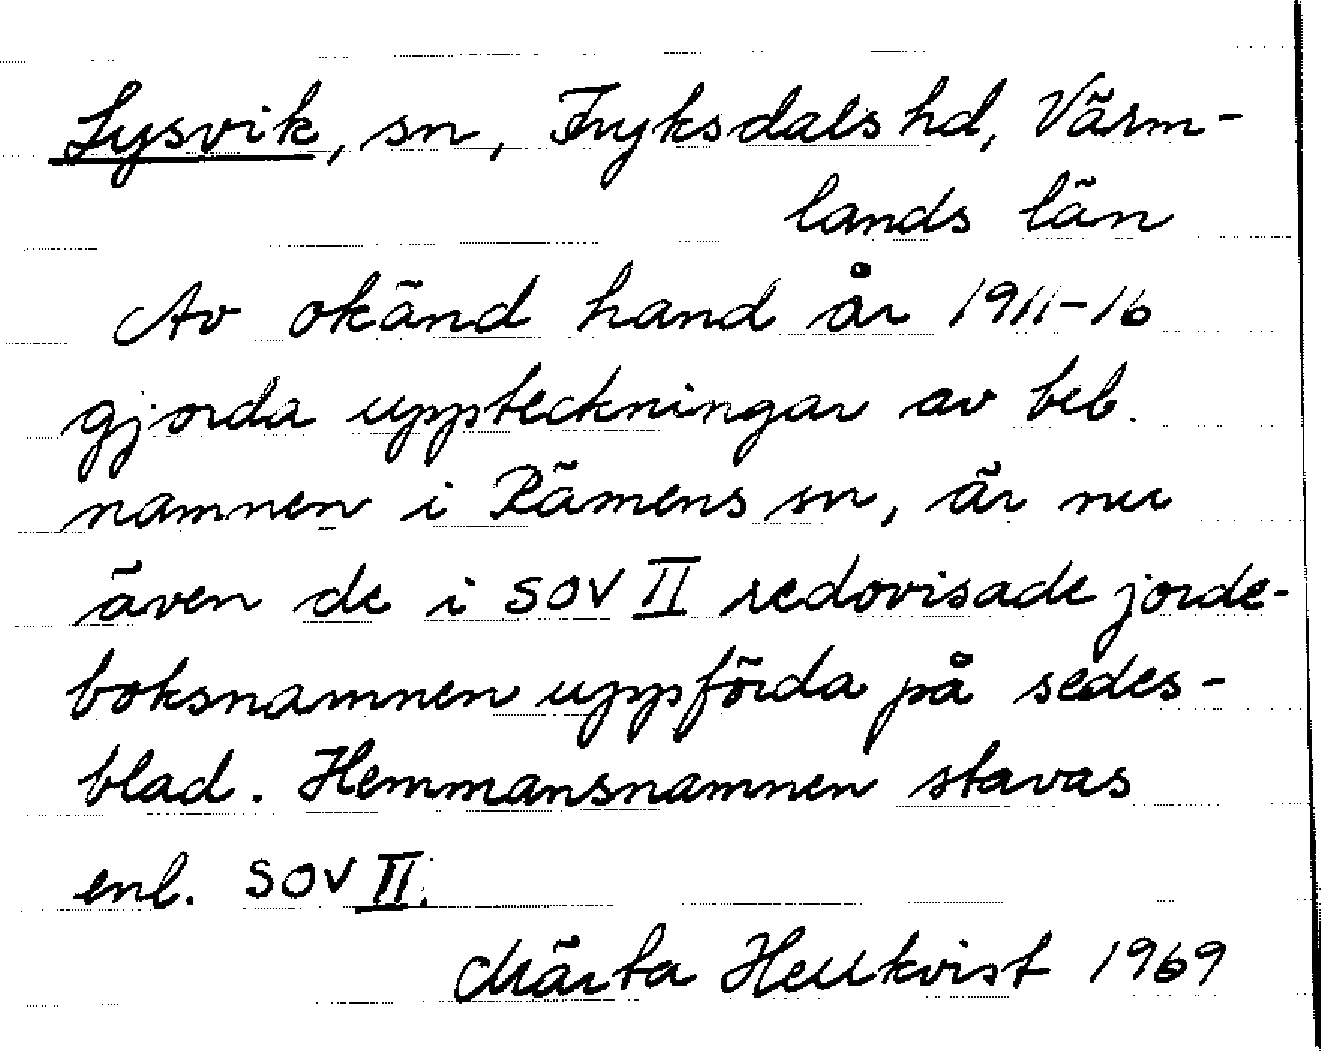 Lysvik, sn, Fryksdals hd, Värm-
lands län
Av okänd hand år 1911-16
gjorda uppteckningar av beb.
namnen i Rämens sn, är nu
även de i SOV II redovisade jorde-
boksnamnen uppförda på sedes-
blad. Hemmansnamnen stavas
enl. SOV II.
Märta Hellkvist 1969